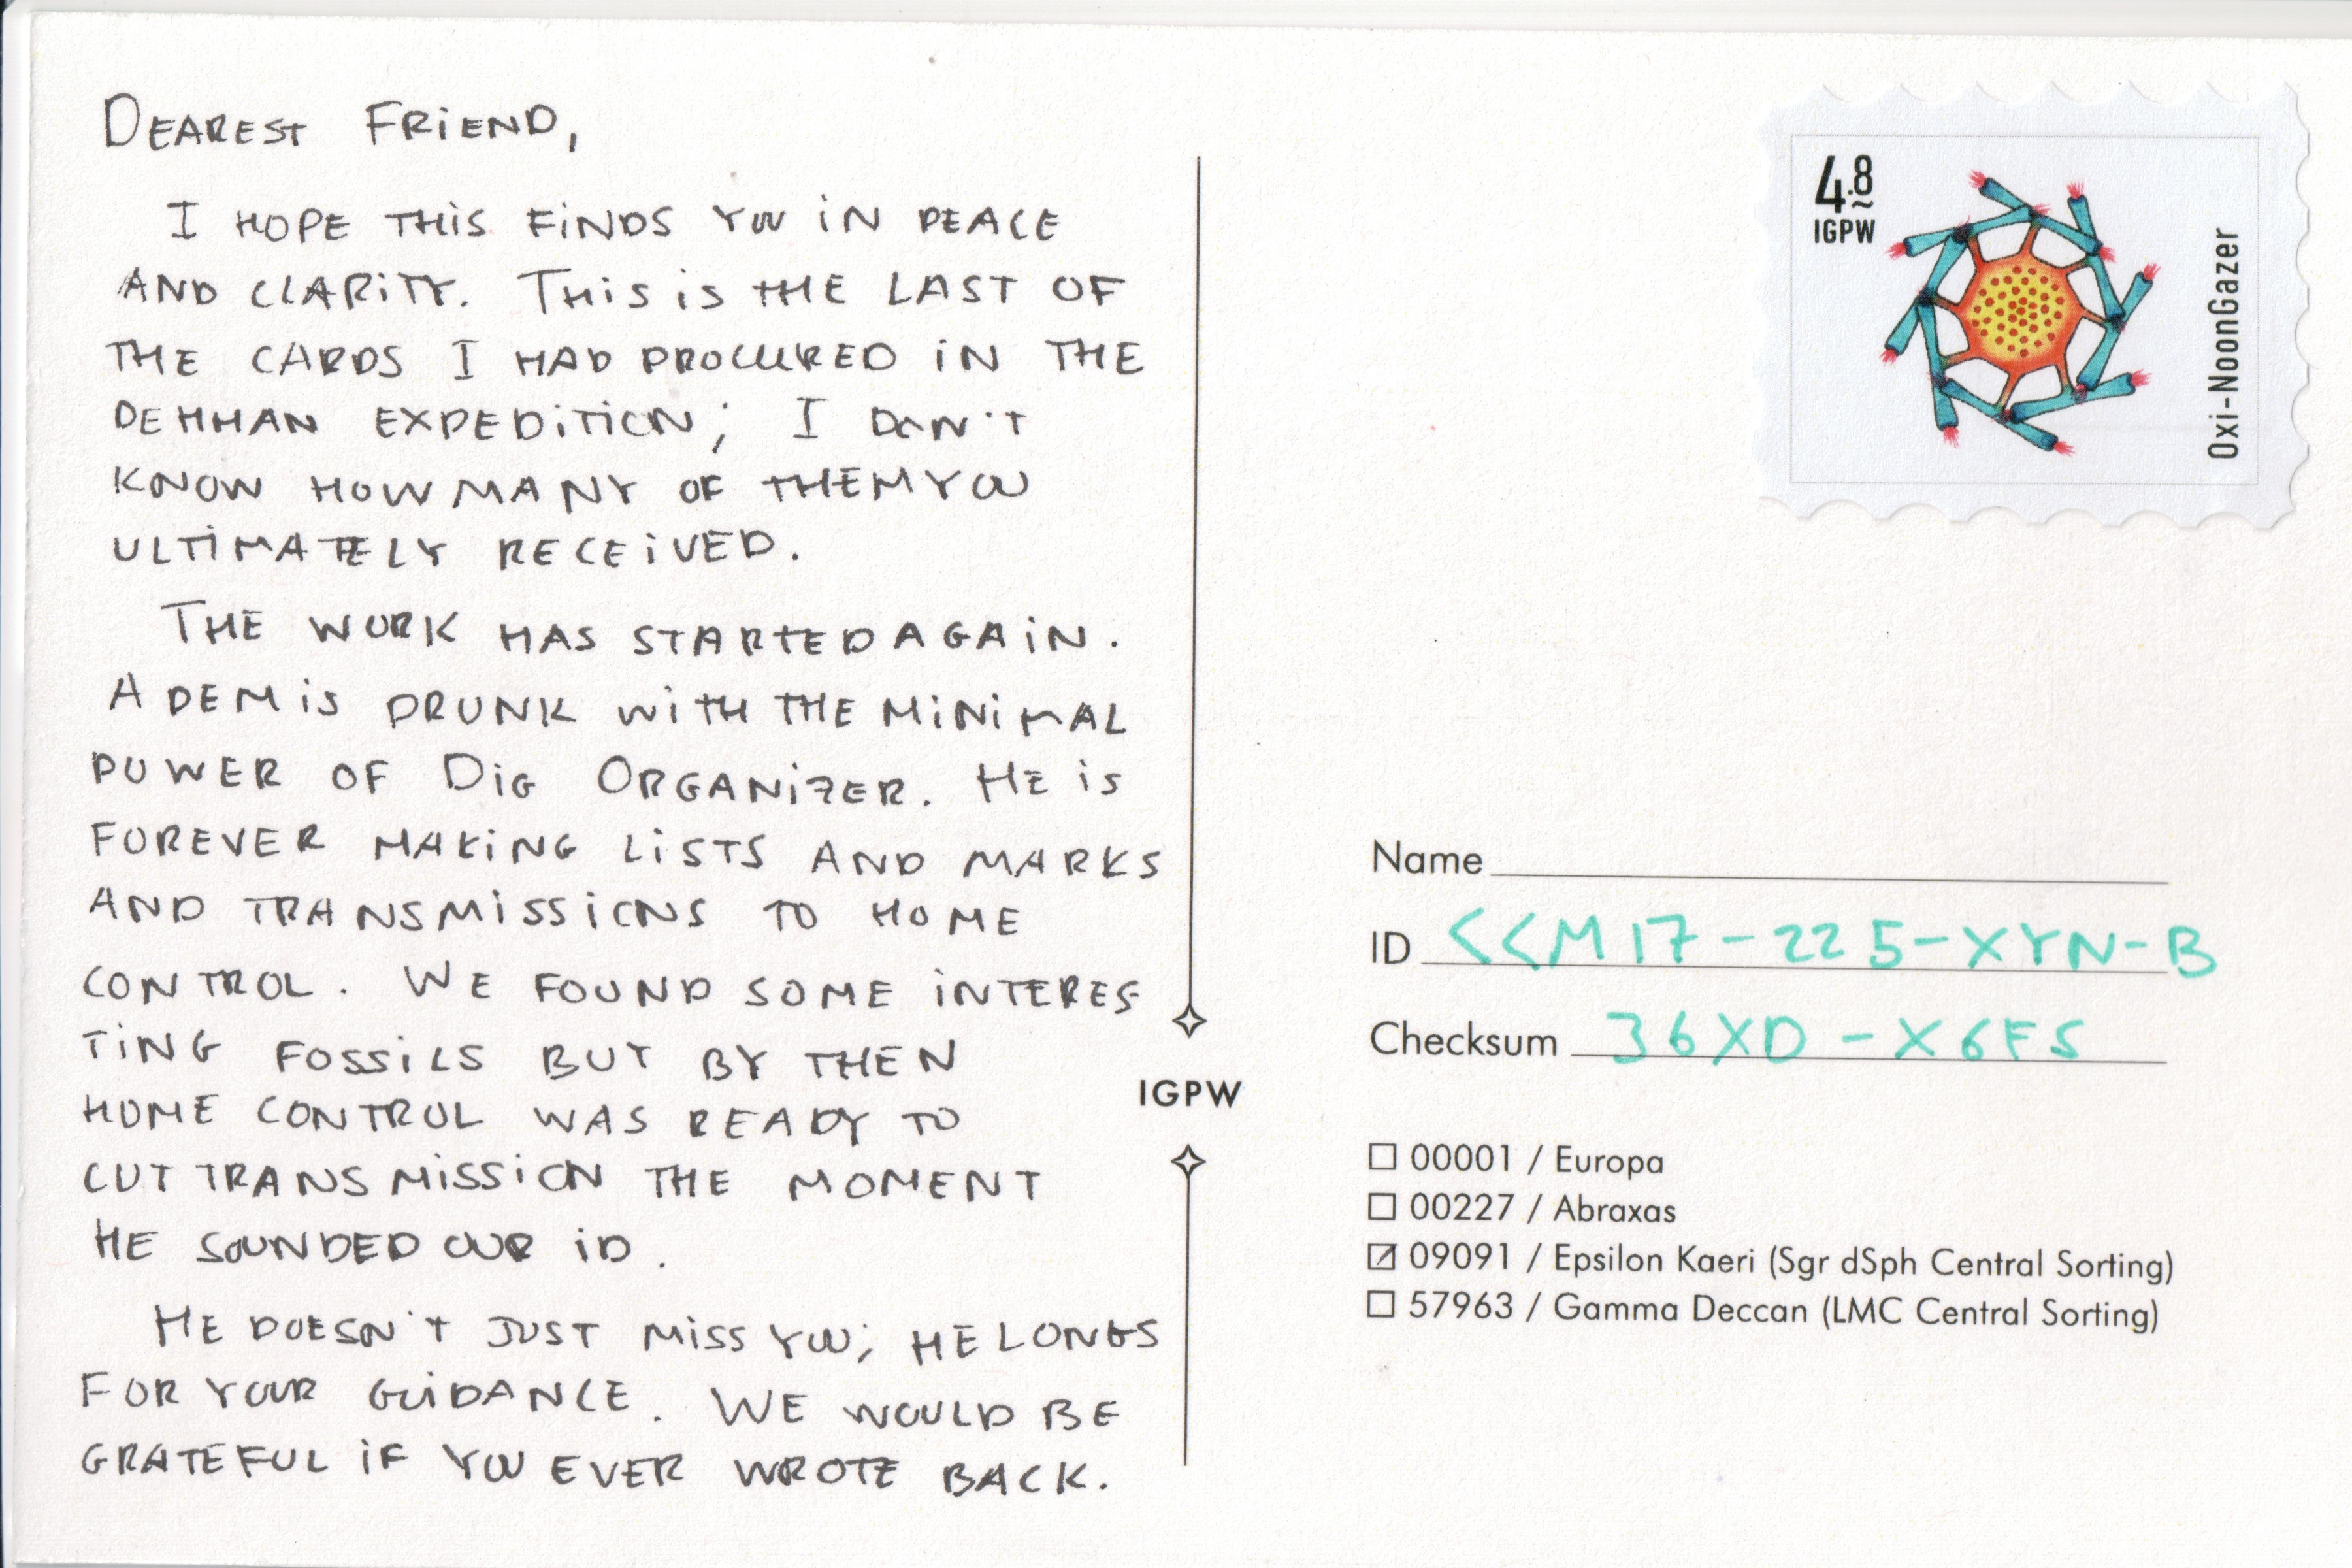 DEAREST FRIEND,
I HOPE THIS FINDS YOU IN PEACE
AND CLARITY. THIS IS THE LAST OF
THE CARDS I HAD PROCURED IN THE
DEHHAN EXPEDITION; I DON'T
KNOW HOW MANY OF THEM YOU
ULTIMATELY RECEIVED.
THE WORK HAS STARTED AGAIN.
ADEM IS DRUNK WITH THE MINIMAL
POWER OF DIG ORGANIZER. HE IS
FOREVER MAKING LISTS AND MARKS
AND TRANSMISSIONS TO HOME
CONTROL. WE FOUND SOME INTERES-
TING FOSSILS BUT BY THEN
HOME CONTROL WAS READY TO
CUT TRANSMISSION THE MOMENT
HE SOUNDED OUR ID.
HE DOESN'T JUST MISS YOU; HE LONGS
FOR YOUR GUIDANCE. WE WOULD BE
GRATEFUL IF YOU EVER WROTE BACK.
IGPW
4.8
IGPW
Oxi-NoonGazer
Name
ID <<M17-225-XYN-B
Checksum 36XD-X6FS
☐ 00001 / Europa
☐ 00227 / Abraxas
☑ 09091 / Epsilon Kaeri (Sgr dSph Central Sorting)
☐ 57963 / Gamma Deccan (LMC Central Sorting)